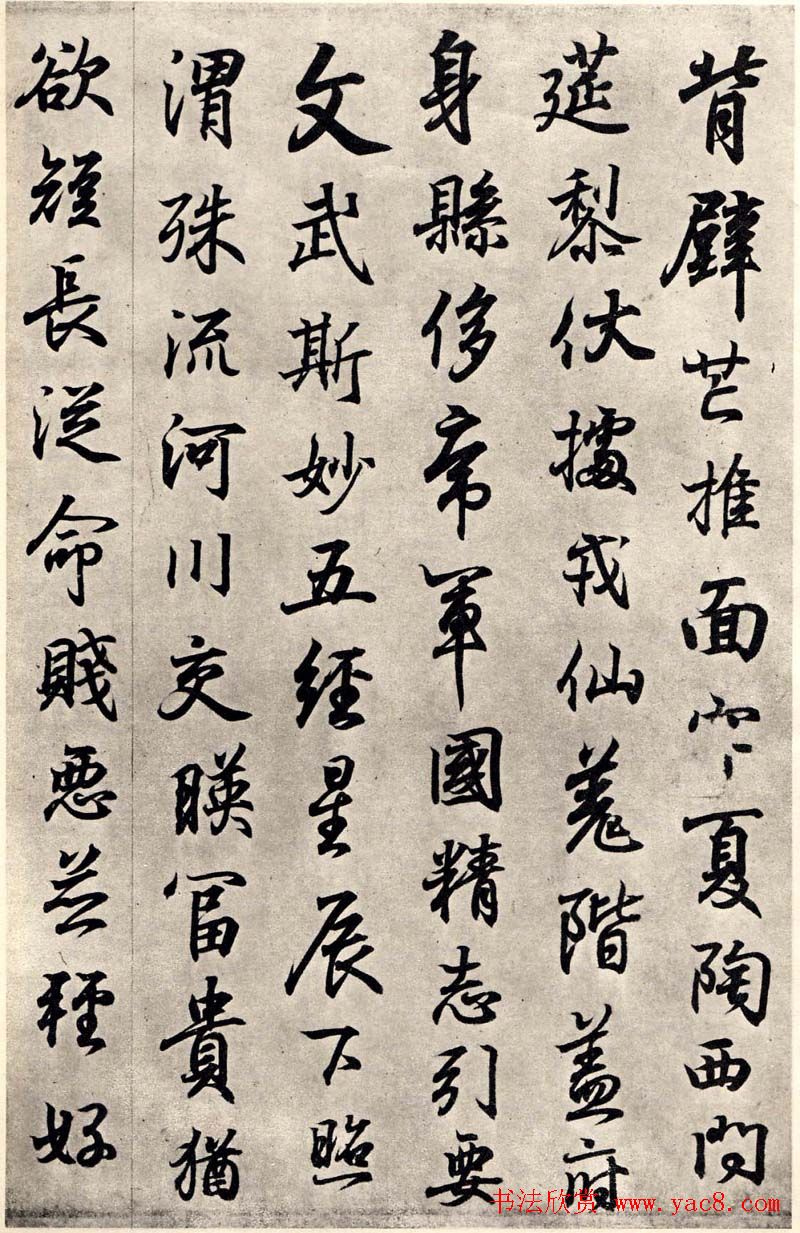 背芒推面夏陶西問
莚黎伏據戎仙羌階蓋府
身縣侈帝軍國精志引要
文武斯妙五經星辰下照
渭殊流河川交暎冨貴猶
欲短長從命賤惡並種好
书法欣赏 www.yac8.com